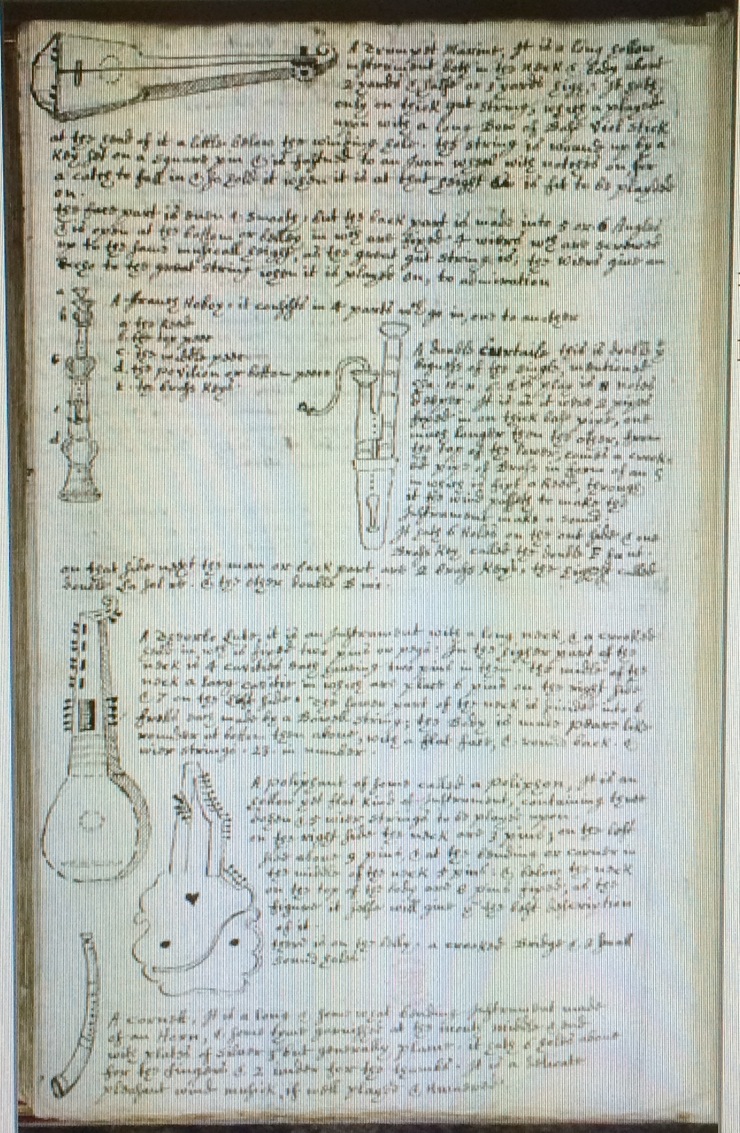 A Trumpet Marine, It is a long hollow
instrument both in the neck & body about
2 yards & halfe or 3 yards high: It hath
only on thick gut string, which is played
upon with a long Bow or Base Viol stick
at the end of it a little below the winding hole. the string is wound up by a
key set on a square pin & is fastned to an Iron wheel with notches on, for
a catch to fall in & so hold it when it is at that height as is fit to be played
on.
the fore part is even & smooth, but the back part is made into 5 or 6 Angles
& is open at the bottom or belley in wch are fixed 4 wiers wch are screwed
up to the same musicall height, as the great gut string is; the wiers give an
Echo to the great string when it is played on, to admiration
a
b
c
d
A French Hoboy. it consists in 4 parts wch go in, one to another
a. the head
b. the top peece
c. the middle peece
d. the pavilion or bottom peece
e. the brass key
A double Curtaile, this is double ye
bigness of the single, mentioned
& is played 8 notes
deeper. It is as it were 2 pipes
fixed in on thick bass pipe, one
much longer then the other, from
the top of the lower, comes a crooke
pipe of Brass in form of an S
in which is fixt a Reed, through
it the wind passeth to make the
Instrument make a sound.
It hath 6 Holes on the out side & one
Brass key, called the double F fa ut.
on that side next the man or back part are 2 brass keys, the highest called
double La sol re. & the other double B mi.
A Theorbo Lute, it is an Instrument with a long neck & a crooked
head in wch is fixed two pins or pegs: In the higher part of the
neck is 4 cavities each having two pins in them: the middle of the
neck a long cavitie in which are placed 6 pins on the right side
& 7 on the left side: the lower part of the neck is divided into 6
frets each made by a Bowell string; the Body is made peare like
rounder at bottom then above, with a flat face, & round back. &
wier strings. 23. in number.
A poliphant of some called a poliphon, It is an
hollow yet flat kind of Instrument, containing three
dozen & 5 wier strings to be played upon.
on the right side the neck are 9 pins; on the left
side above 9 pins & at the bending or corner in
the middle of the neck 5 pins. & below the neck
on the top of the body are 8 pins more, as the
figure it selfe will give ye the best description
of it.
there is on the belly a crooked Bridge & 3 small
sound holes.
A Cornett, It is a long & somewhat bending Instrument made
of an Horn, & some times garnished at the mouth, middle & end
with plates of silver; but generally plaine. it hath 6 holes above
for the fingers & 2 under for the thumbs. It is a delicate
pleasant wind musick, if well played & Humored.